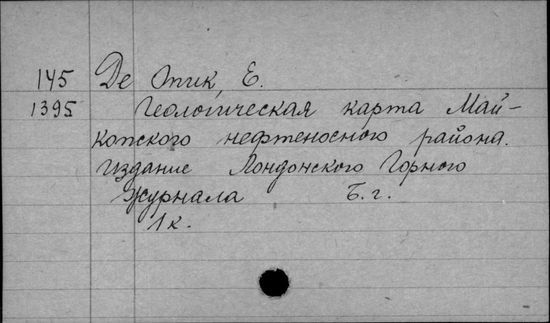 145 Де Опик, Е.
1395 Геологическая карта Май-
копского нефтеносного района.
Издание Лондонского Горного
Журнала Б. г.
1 к.